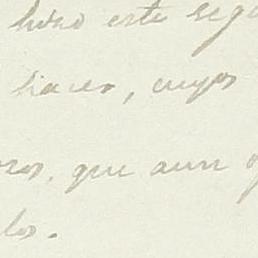 hizo este segu
hacer, cuyos
osos, que aun q
los.